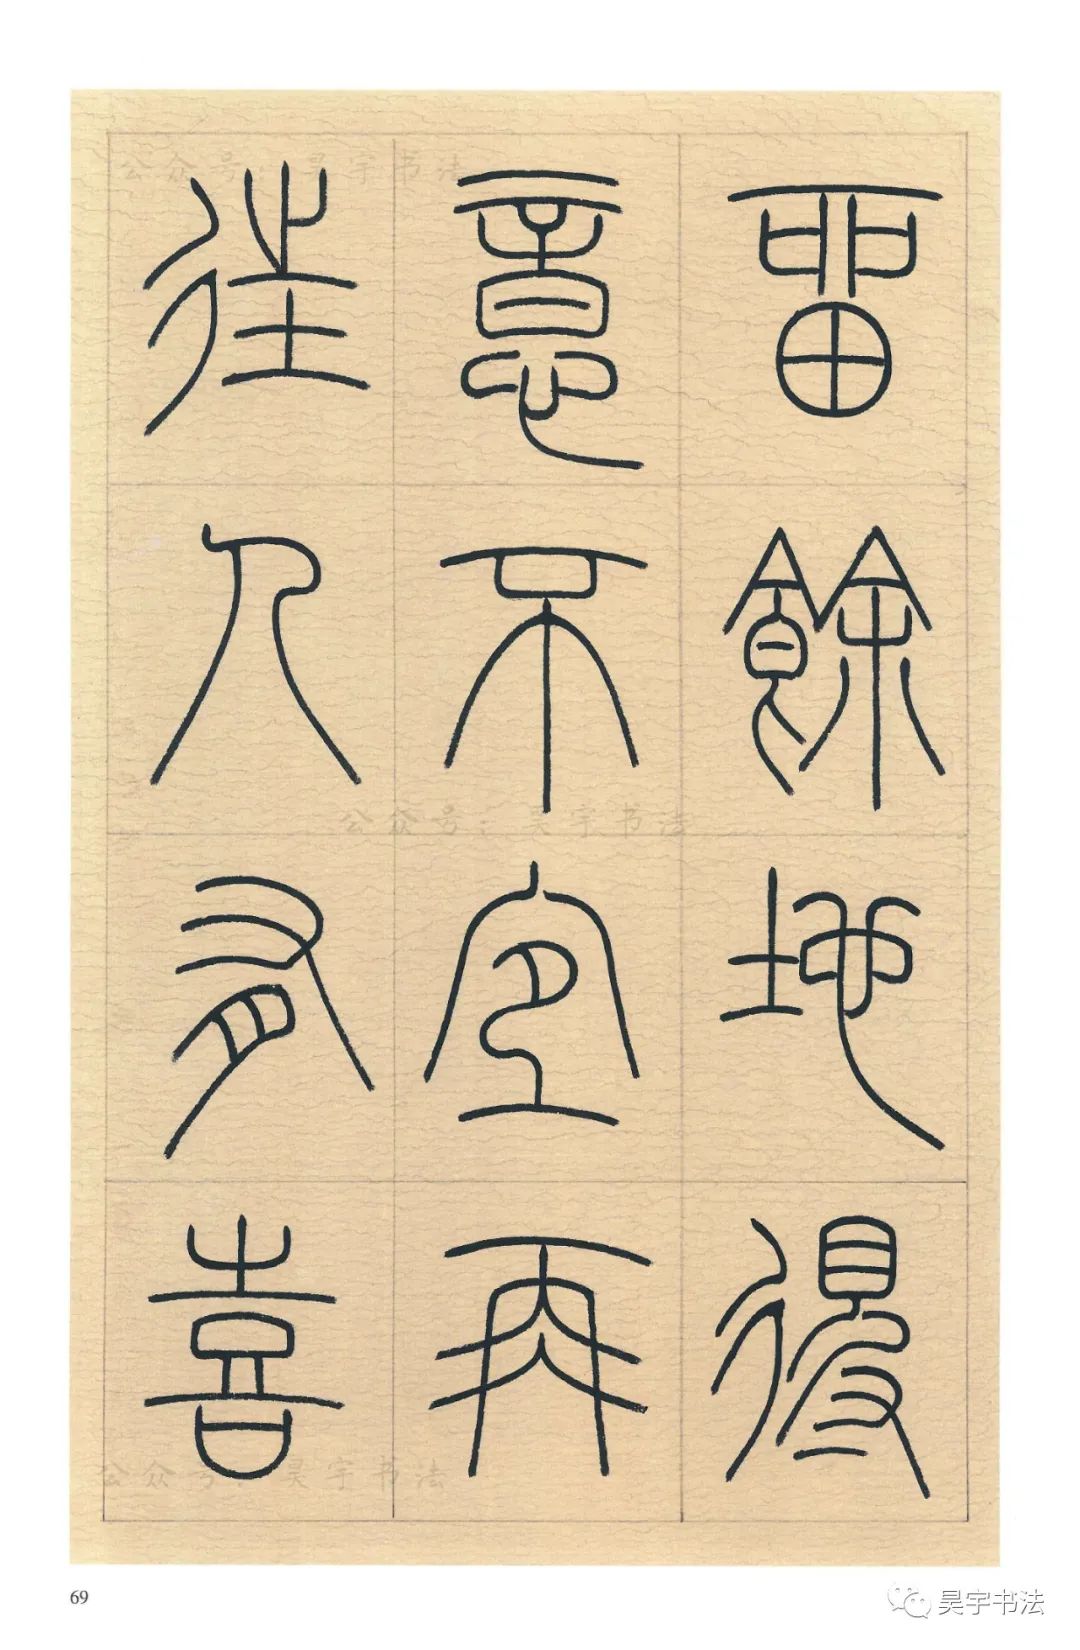 留餘地得
意不宜再
往人有喜
公众号：昊宇书法
公众号：昊宇书法
公众号：昊宇书法
69
昊宇书法